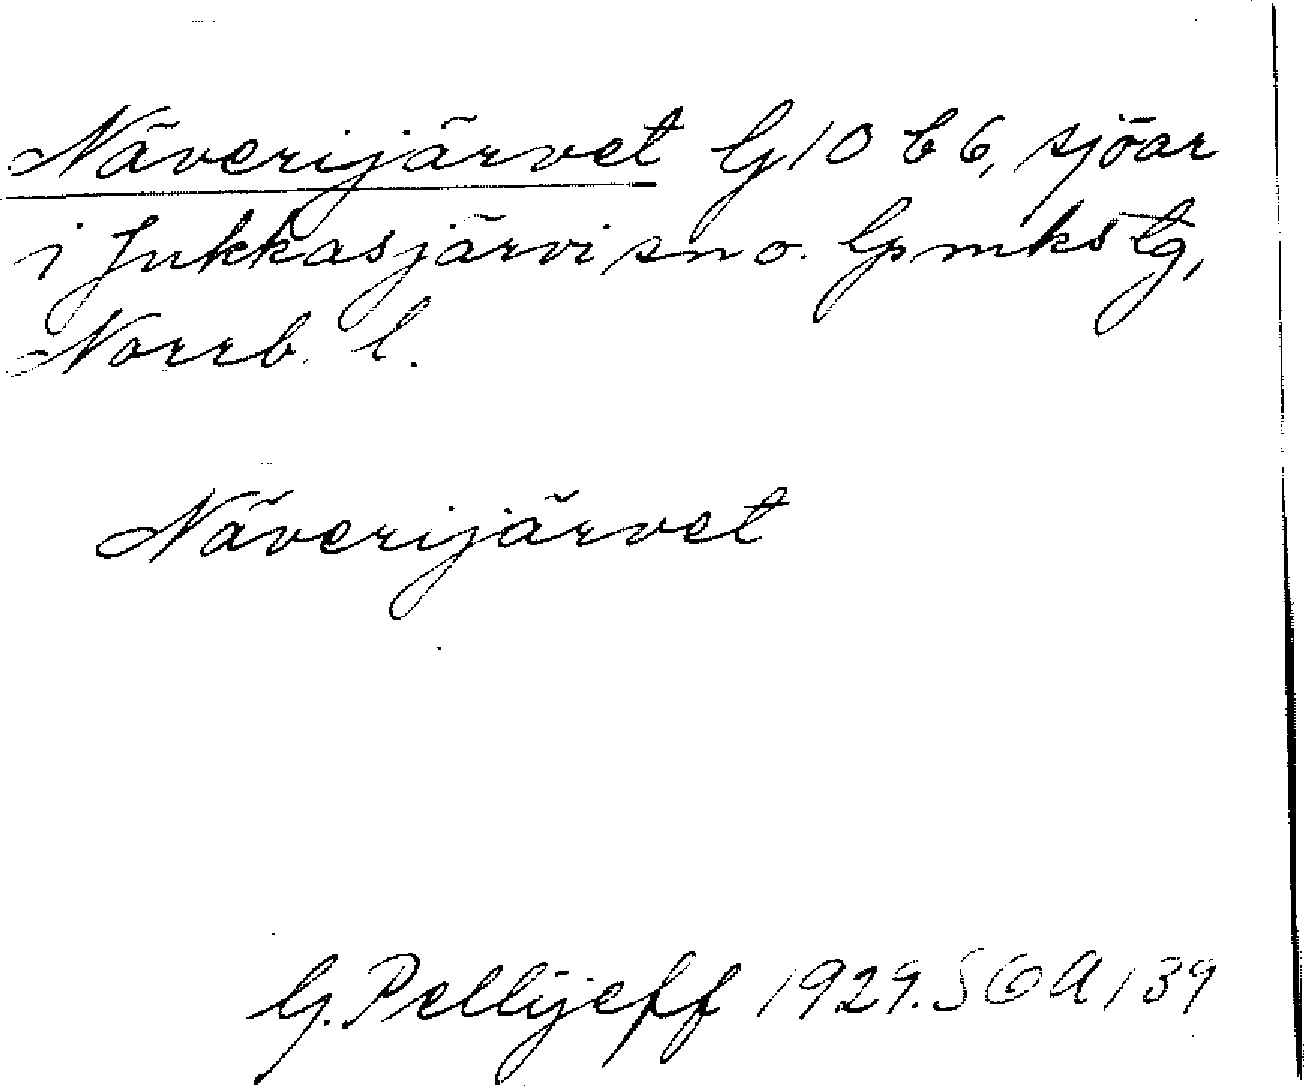 Näverijärvet G 10 b 6, sjöar
i Jukkasjärvi sn o. lpmkstg,
Norrb. l.
Näverijärvet
G. Pellijeff 1929. SOA 139